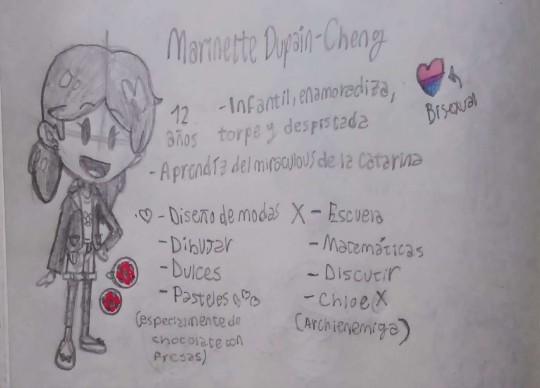 Marinette Dupain-Cheng
12 años
- Infantil, enamoradiza,
torpe y despistada
Bisexual
- Aprendiz del miraculous de la catarina
♡ - Diseño de modas
- Dibujar
- Dulces
- Pasteles
(especialmente de
chocolate con
fresas)
X - Escuela
- Matemáticas
- Discutir
- Chloe X
(Archienemiga)